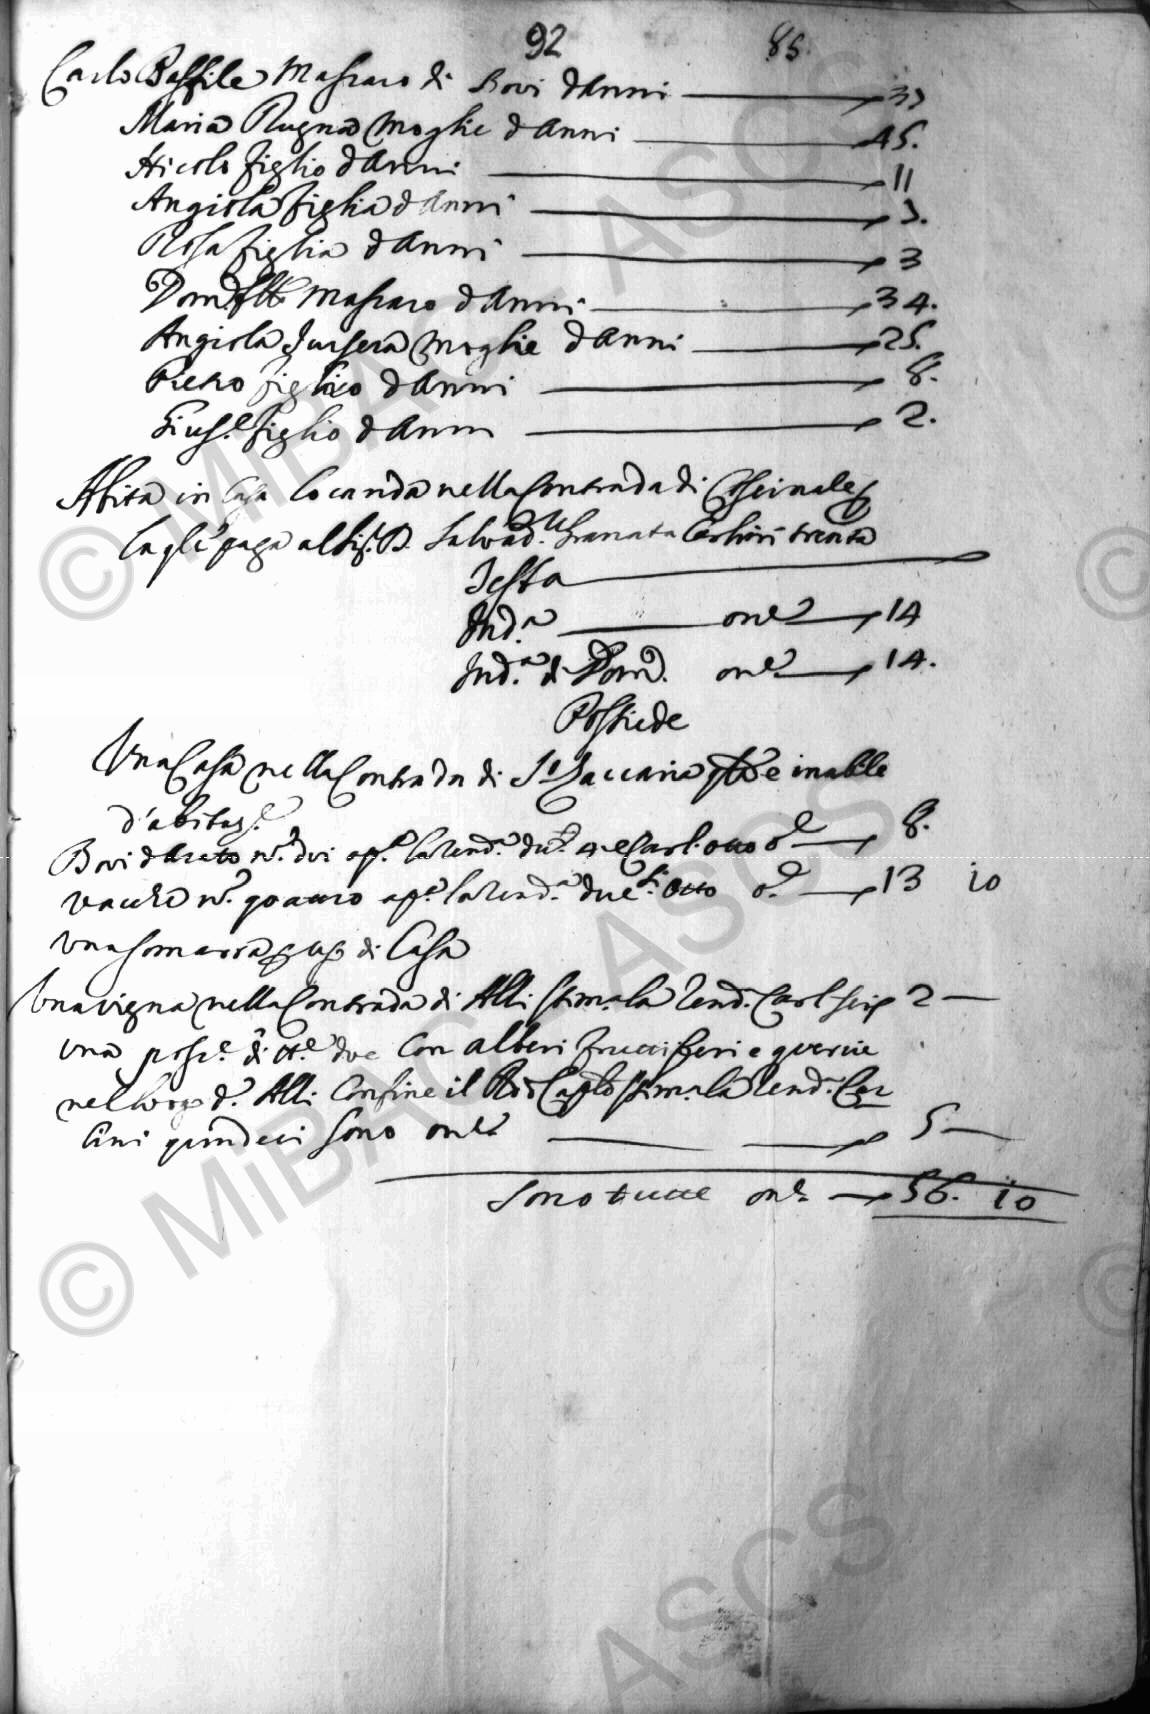 92 85.
Carlo Baffile Massaro di Bovi d'Anni 3
Maria Rugna Moglie d'Anni 45.
Nicolo figlio d'Anni 11
Angiola figlia d'Anni
Rosa figlia d'Anni 3
Dom.co Massaro d'Anni 34.
Angiola Moglie d'Anni 25.
Pietro figlio d'Anni 8.
Gius.e figlio d'Anni 2.
Abita in Casa locanda nella Contrada di
la q.le paga al Sig. D. Salvad.re Granata Carlini trenta
Testa
Ind.a on.e 14
Ind.a di Dom.co on.e 14.
Possiede
Una Casa nella Contrada di S. Zaccaria inabile
d'abitaz.e
Bovi d'Arato n.o dui ap.o la rend.a du.ti 4 e Carl. otto o.e 8.
Vacche n.o quattro ap.o la rend.a duc.ti Otto o.e 13 10
Una somarra p uso di Casa
Una vigna nella Contrada di Alli stim. la rend. Carl. sei 2
Una poss.e di tt.e due Con alberi fruttiferi e quercie
nel luogo d.o Alli Confine il R.do Cap.lo stim. la rend. Car
lini quindeci sono on.e 5
Sono tutte on.e 56. 10
© MiBAC - ASCS
© MiBAC - ASCS
ASCS